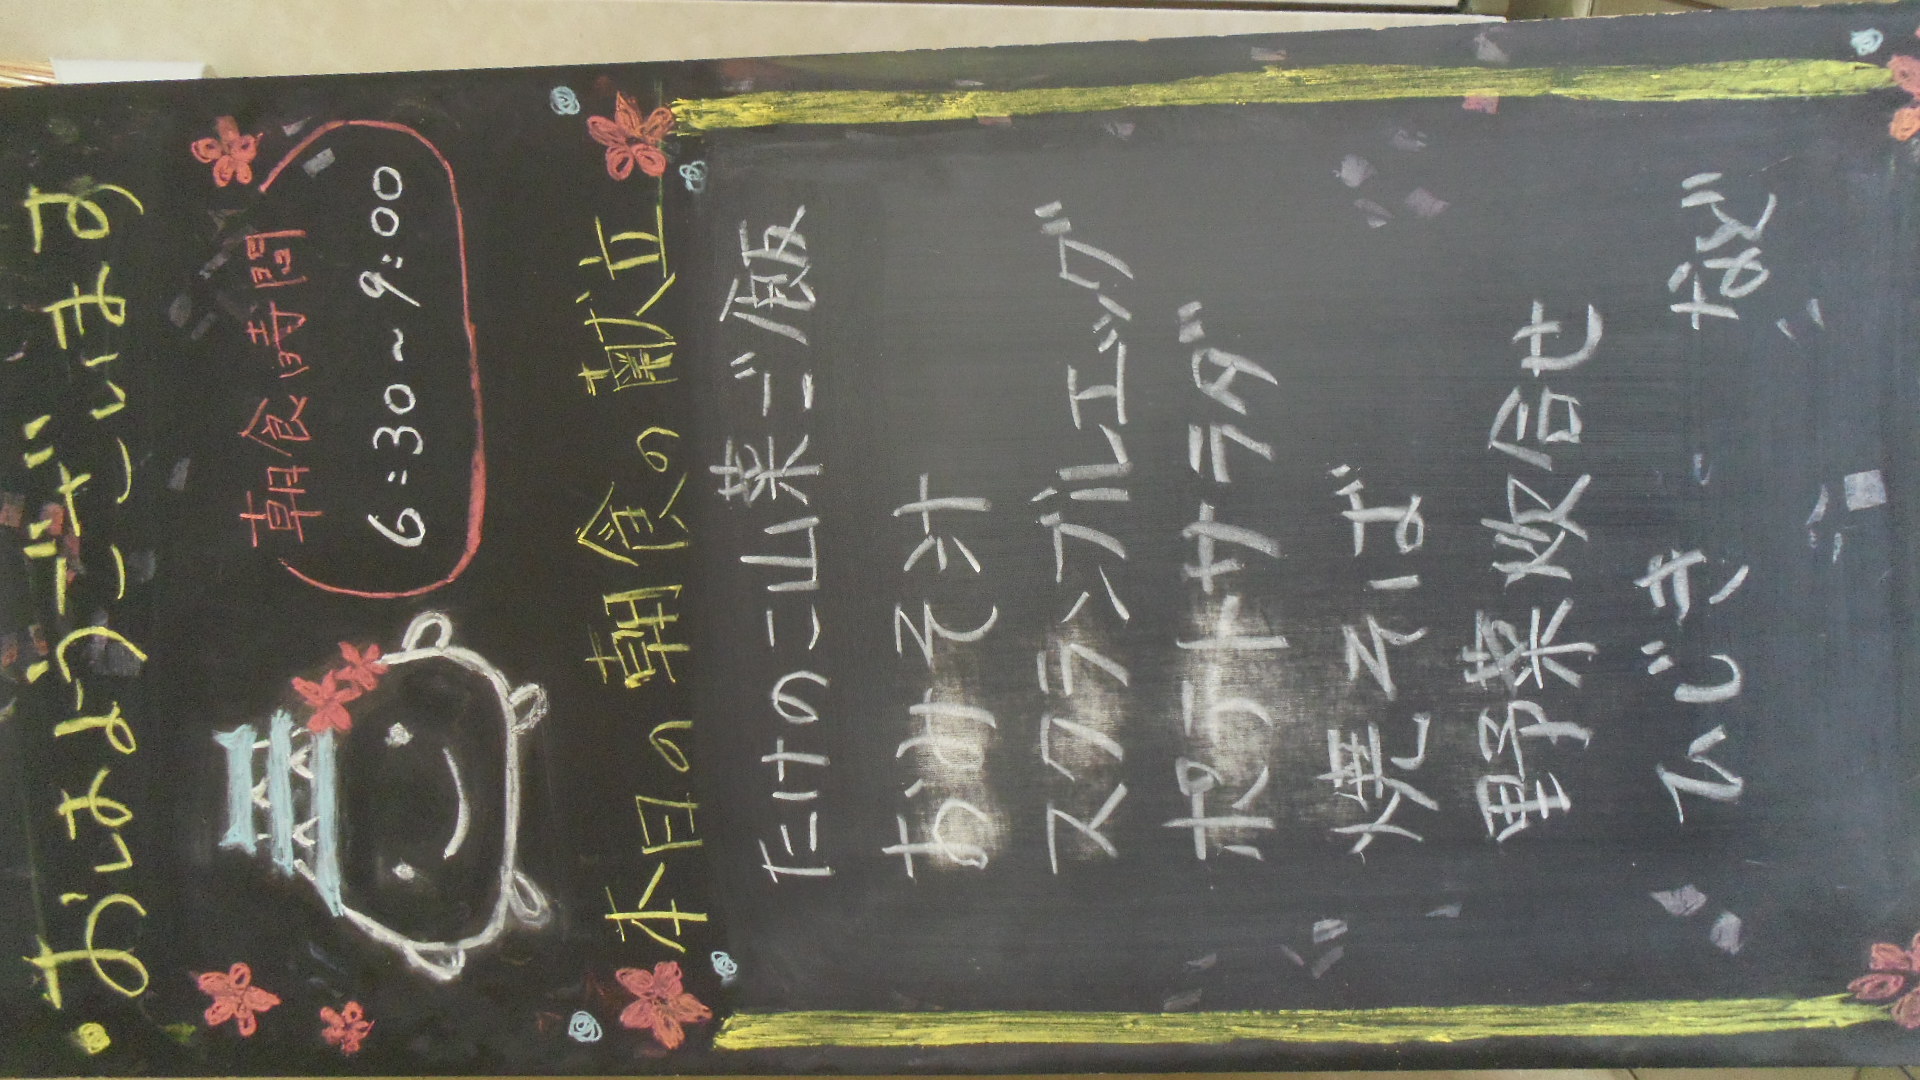 おはようございます
朝食時間
6:30~9:00
本日の朝食の献立
たけのこ山菜ご飯
おみそ汁
スクランブルエッグ
ポテトサラダ
焼そば
野菜炊合せ
ひじき など